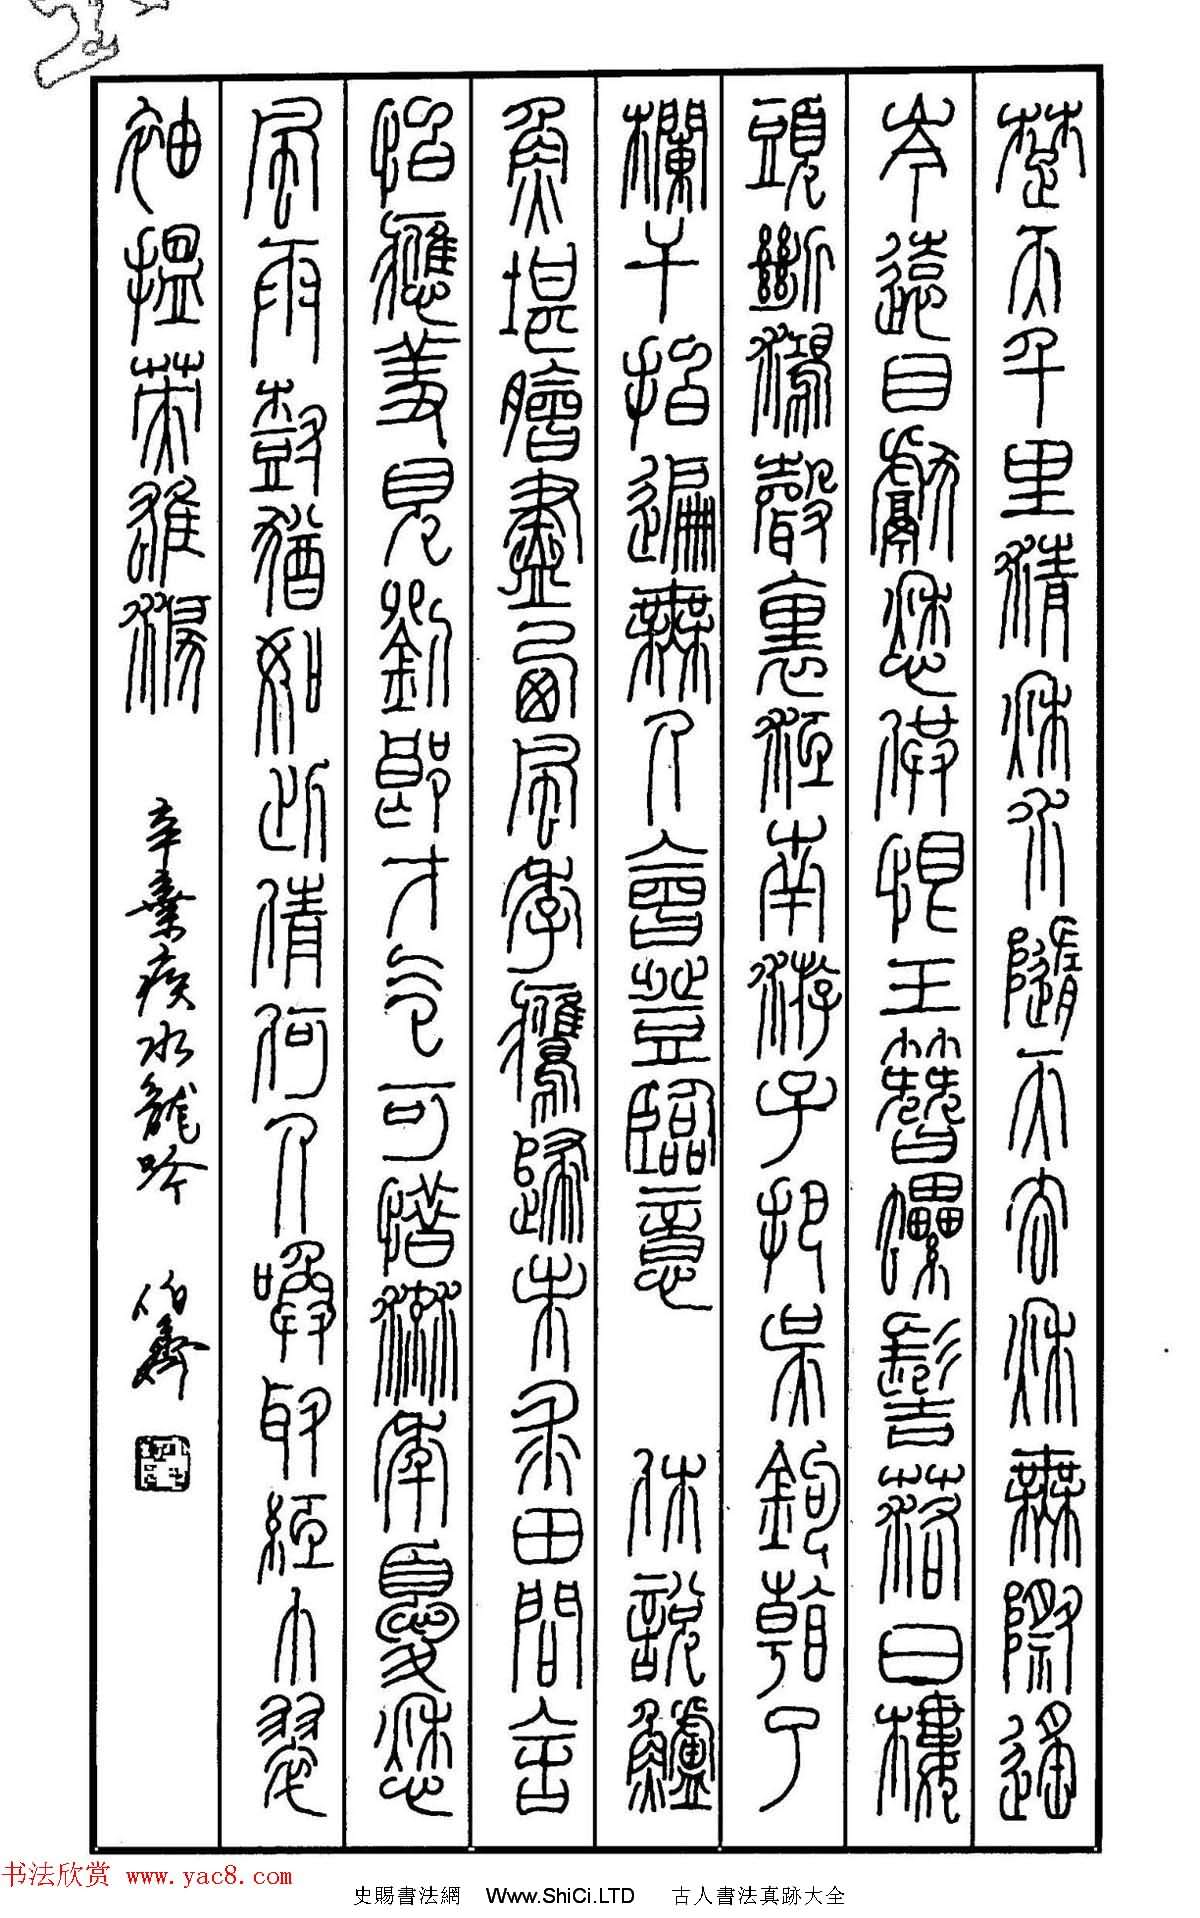 楚天千里清秋水隨天去秋無際遙
岑遠目獻愁供恨玉簪螺髻落日樓
頭斷鴻聲裏江南游子把吳鉤看了
欄干拍遍無人會登臨意 休說鱸
魚堪膾盡西風季鷹歸未求田問舍
怕應羞見劉郎才氣可惜流年憂愁
風雨樹猶如此倩何人喚取紅巾翠
袖搵英雄淚 辛棄疾水龍吟 伯齊
书法欣赏 www.yac8.com
史賜書法網 Www.ShiCi.LTD 古人書法真跡大全